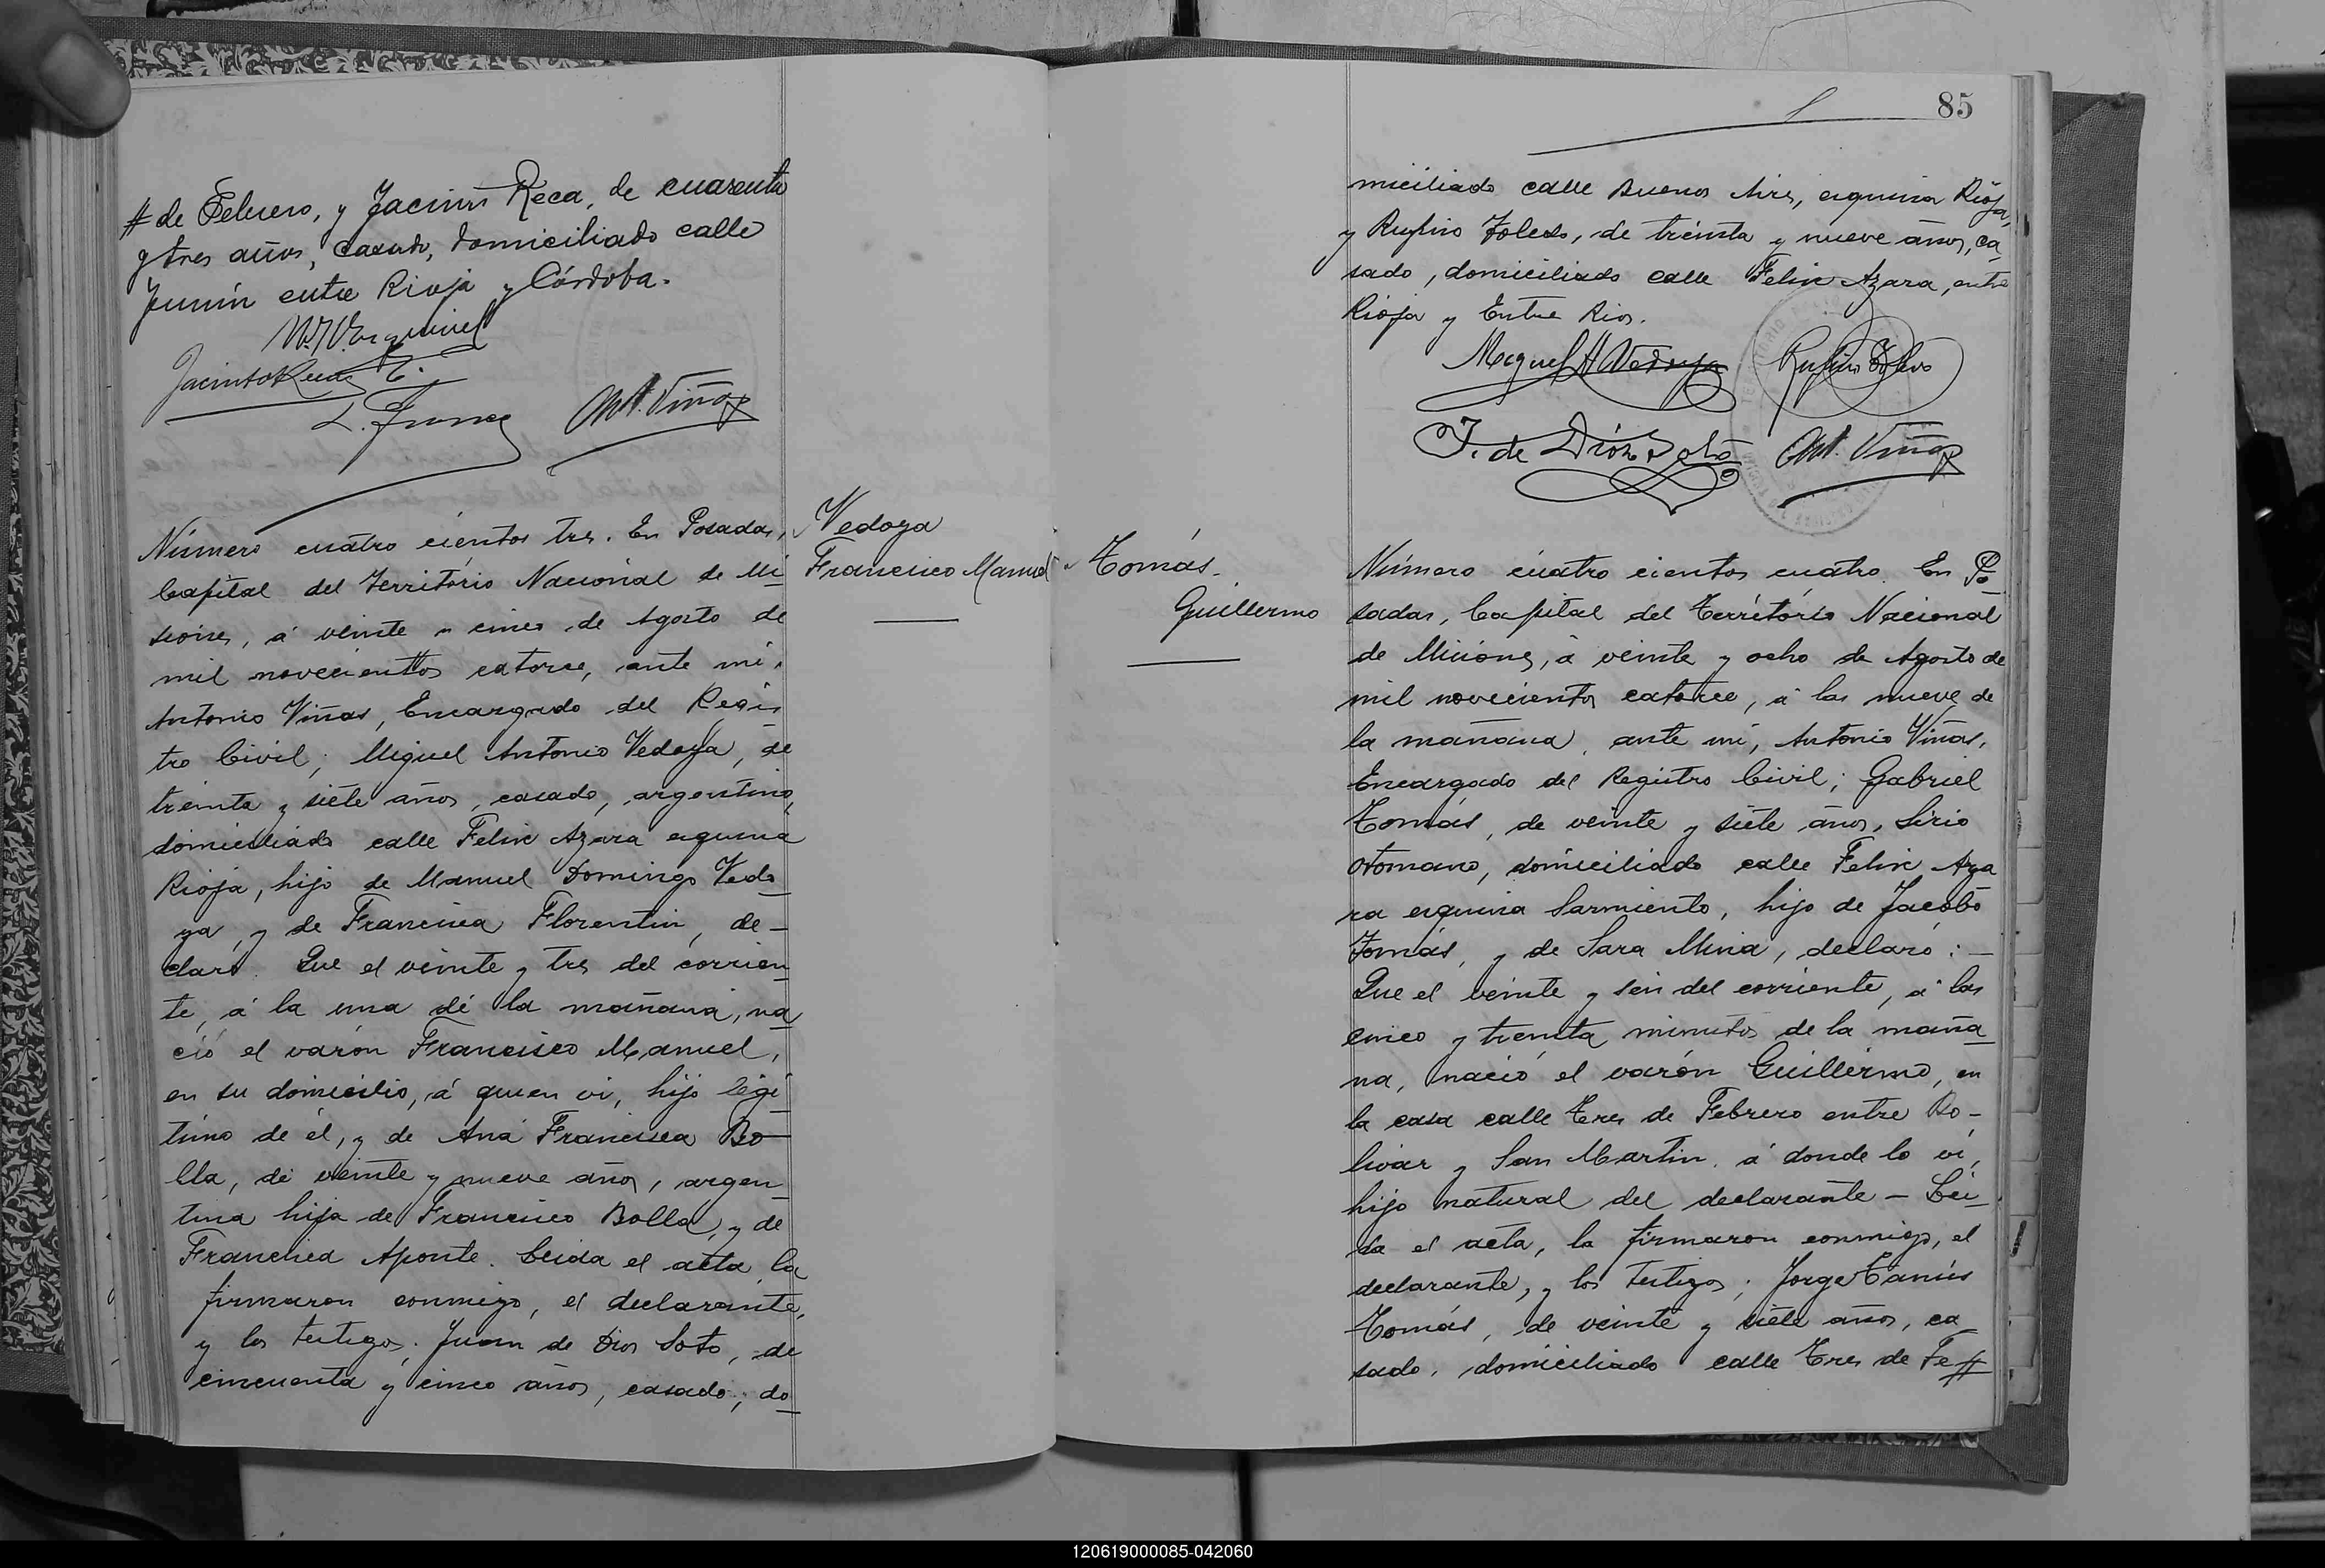 # de Febrero, y Jacinto Reca, de cuarenta
y tres años, casado, domiciliado calle
Junín entre Rioja y Córdoba.
Jacinto Reca
Ant. Viñas
Número cuatro cientos tres. En Posadas,
Capital del Territorio Nacional de Mi
siones, á veinte y cinco de Agosto de
mil novecientos catorce, ante mí,
Antonio Viñas, Encargado del Regis
tro Civil; Miguel Antonio Vedoya, de
treinta y siete años, casado, argentino,
domiciliado calle Felix Azara esquina
Rioja, hijo de Manuel Domingo Vedo
ya, y de Francisca Florentin, de-
claró. Que el veinte y tres del corrien
te, á la una de la mañana, na
ció el varón Francisco Manuel,
en su domicilio, á quien vi, hijo legí
timo de él, y de Ana Francisca Bo
lla, de veinte y nueve años, argen
tina hija de Francisco Bolla, y de
Francisca Aponte. Leida el acta, la
firmaron conmigo, el declarante,
y los testigos; Juan de Dios Soto, de
cincuenta y cinco años, casado, do
Vedoya
Francisco Manuel
85
miciliado calle Buenos Aires, esquina Rioja,
y Rufino Toledo, de treinta y nueve años, ca
sado, domiciliado calle Felix Azara, entre
Rioja y Entre Rios.
Miguel A Vedoya Rufino Toledo
J. de Dios Soto Ant. Viñas
Tomás.
Guillermo
Número cuatro cientos cuatro. En Po
sadas, Capital del Territorio Nacional
de Misiones, á veinte y ocho de Agosto de
mil novecientos catorce, á las nueve de
la mañana, ante mí, Antonio Viñas,
Encargado del Registro Civil; Gabriel
Tomás, de veinte y siete años, Sirio
otomano, domiciliado calle Felix Aza
ra esquina Sarmiento, hijo de Jacobo
Tomás, y de Sara Mina, declaró: -
Que el veinte y seis del corriente, á las
cinco y treinta minutos de la maña
na, nació el varón Guillermo, en
la casa calle Tres de Febrero entre Bo-
livar y San Martin, á donde lo vi,
hijo natural del declarante - Lei
da el acta, la firmaron conmigo, el
declarante, y los testigos; Jorge
Tomás, de veinte y siete años, ca
sado, domiciliado calle Tres de Fe #
120619000085-042060